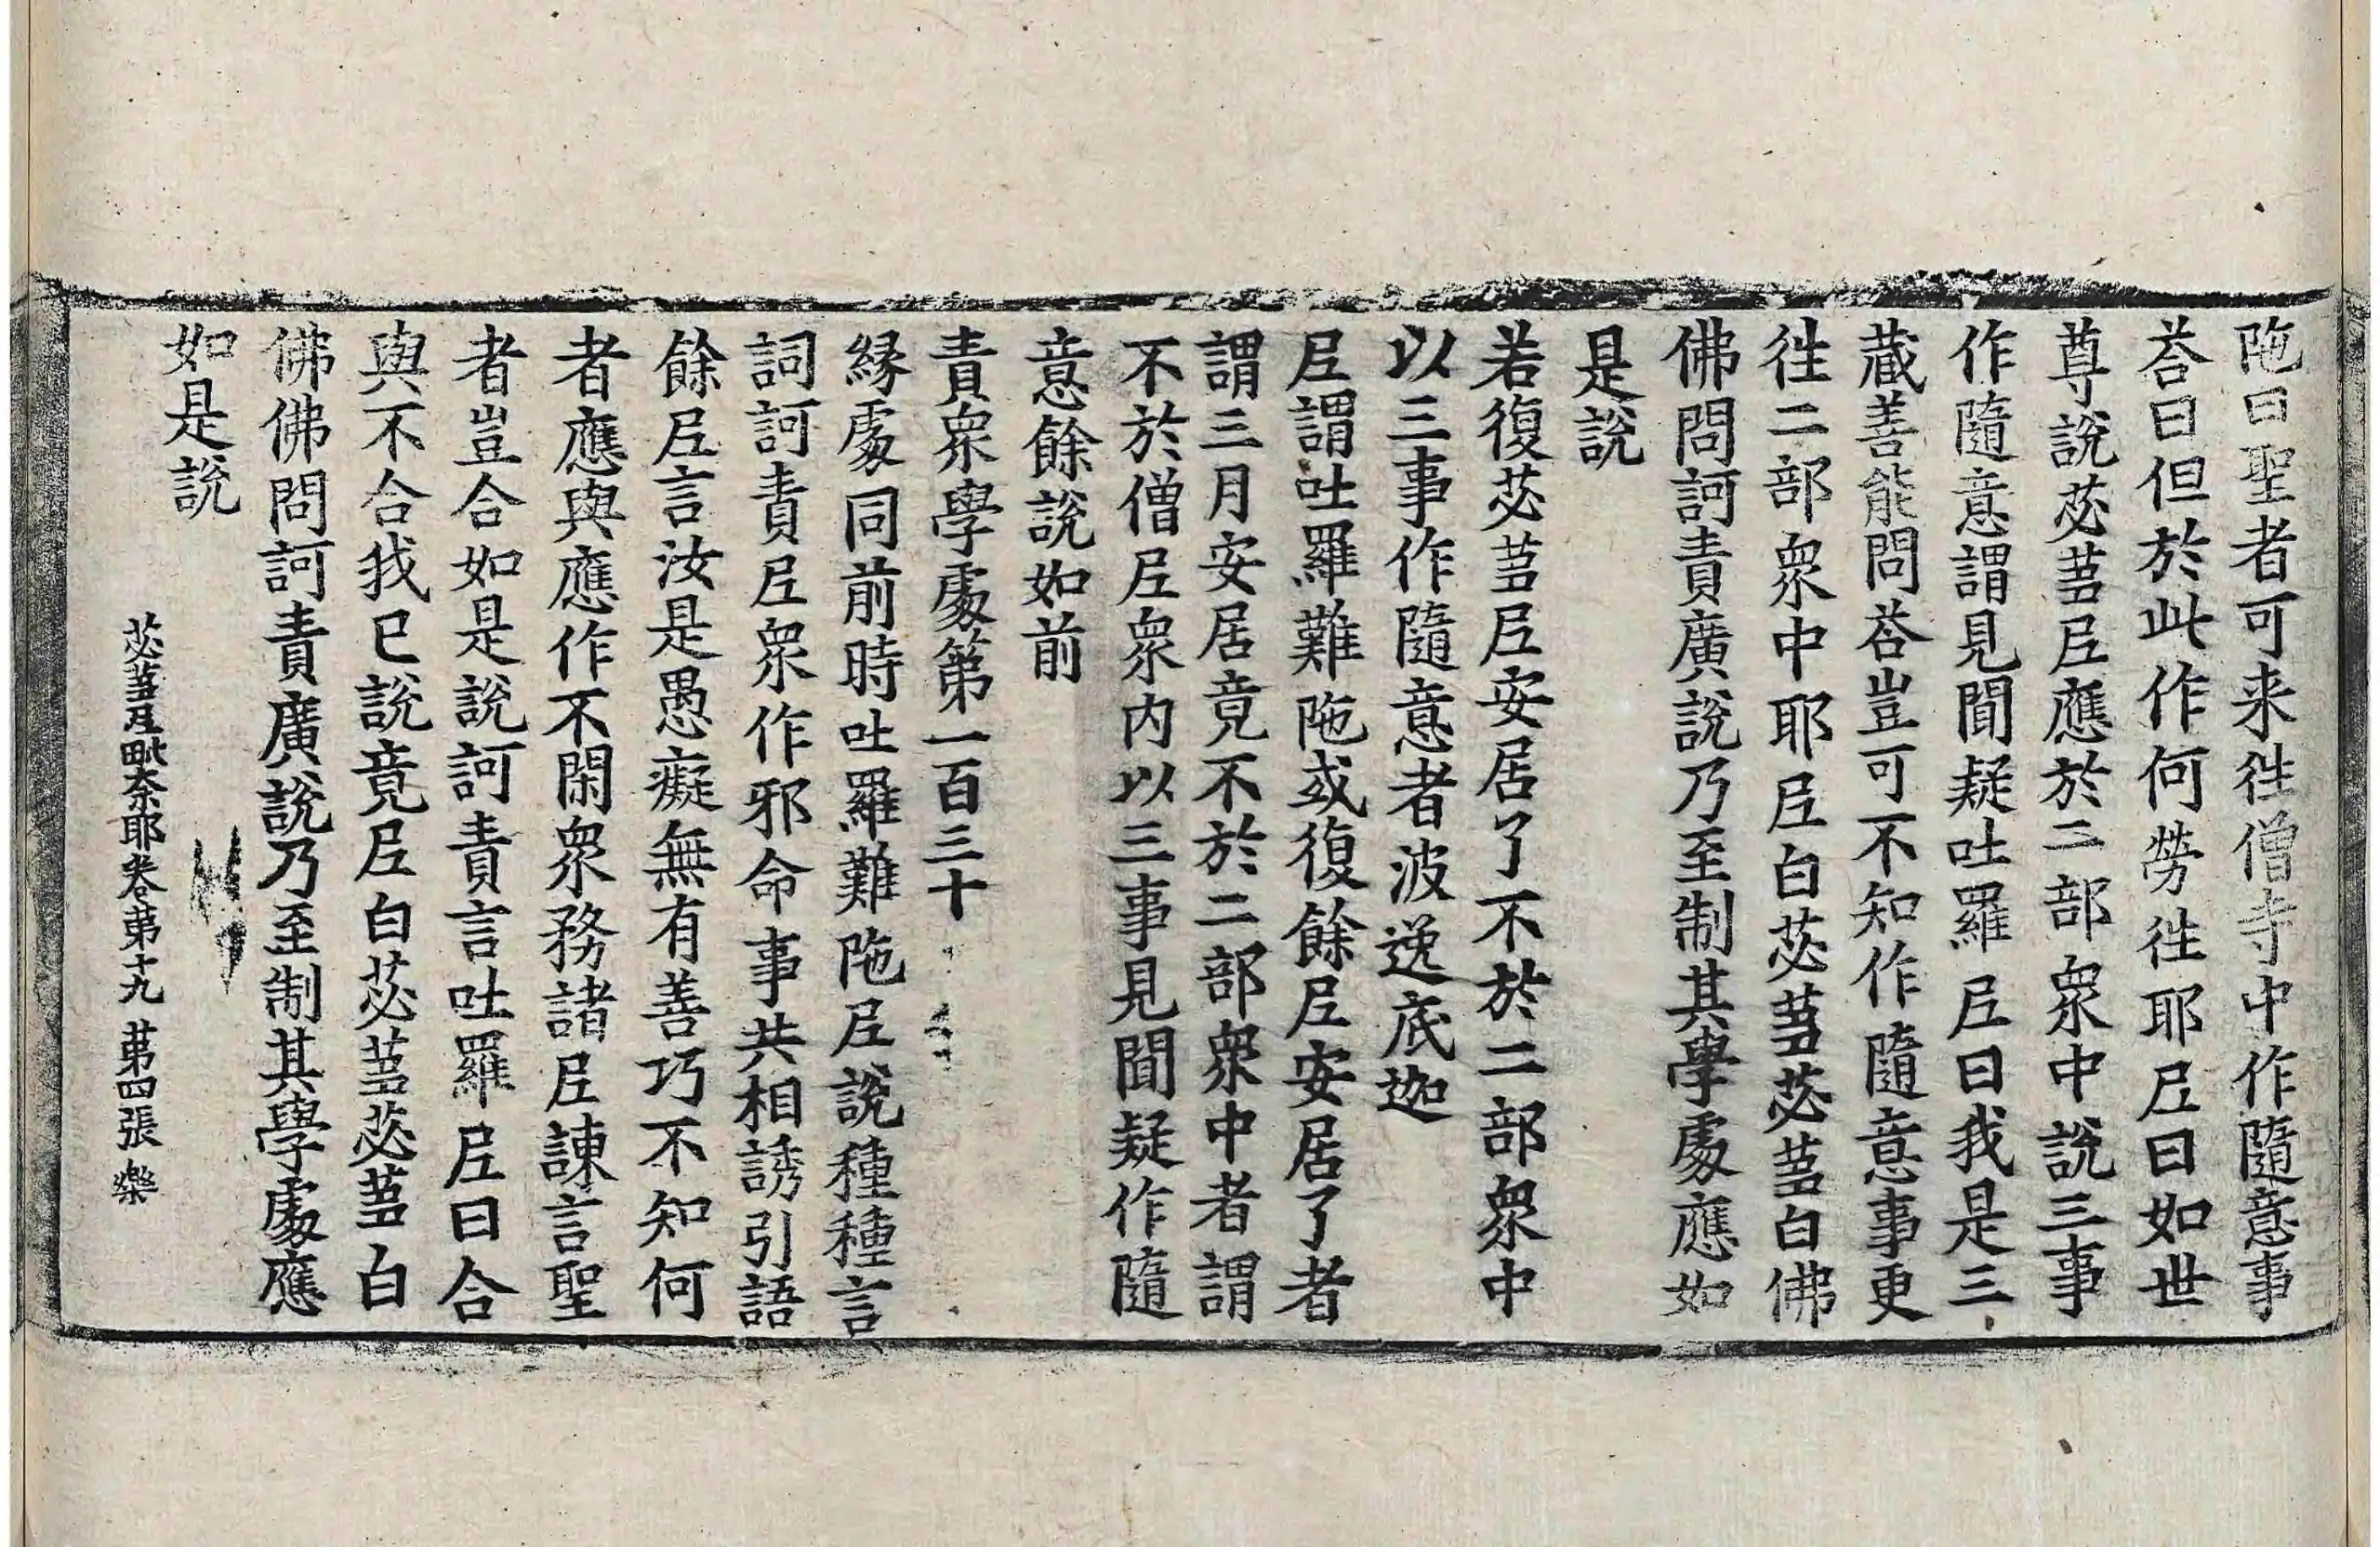 陁曰聖者可来徃僧寺中作隨意事
荅曰但於此作何勞徃耶尼曰如世
尊說苾蒭尼應於二部衆中說三事
作隨意謂見聞疑吐羅尼曰我是三
藏善能問荅豈可不知作隨意事更
徃二部衆中耶尼白苾蒭苾蒭白佛
佛問訶責廣說乃至制其學處應如
是說
若復苾蒭尼安居了不於二部衆中
以三事作隨意者波逸底迦
尼謂吐羅難陁或復餘尼安居了者
謂三月安居竟不於二部衆中者謂
不於僧尼衆内以三事見聞疑作隨
意餘說如前
責衆學處第一百三十
緣處同前時吐羅難陁尼說種種言
詞訶責尼衆作邪命事共相誘引語
餘尼言汝是愚癡無有善巧不知何
者應與應作不閑衆務諸尼諫言聖
者豈合如是說訶責言吐羅尼曰合
與不合我已說竟尼白苾蒭苾蒭白
佛佛問訶責廣說乃至制其學處應
如是說
苾蒭尼毗奈耶卷第十九 第四張 樂